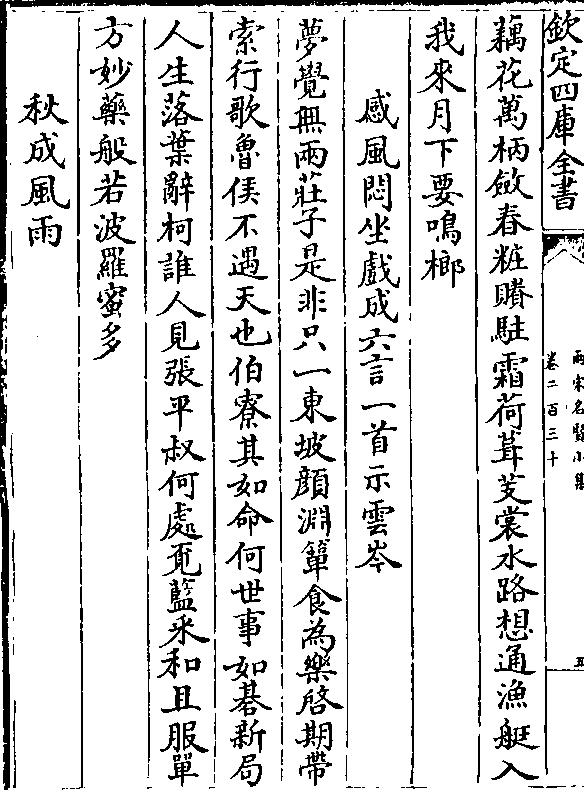 欽定四庫全書
兩宋名賢小集
卷二百三十
五
藕花萬柄斂春粧賸駐霜荷葺芰裳水路想通漁艇入
我來月下要鳴榔
感風悶坐戲成六言一首示雲岑
夢覺無兩莊子是非只一東坡顏淵簞食為樂啓期帶
索行歌魯侯不遇天也伯寮其如命何世事如棊新局
人生落葉辭柯誰人見張平叔何處覔藍采和且服單
方妙藥般若波羅蜜多
秋成風雨